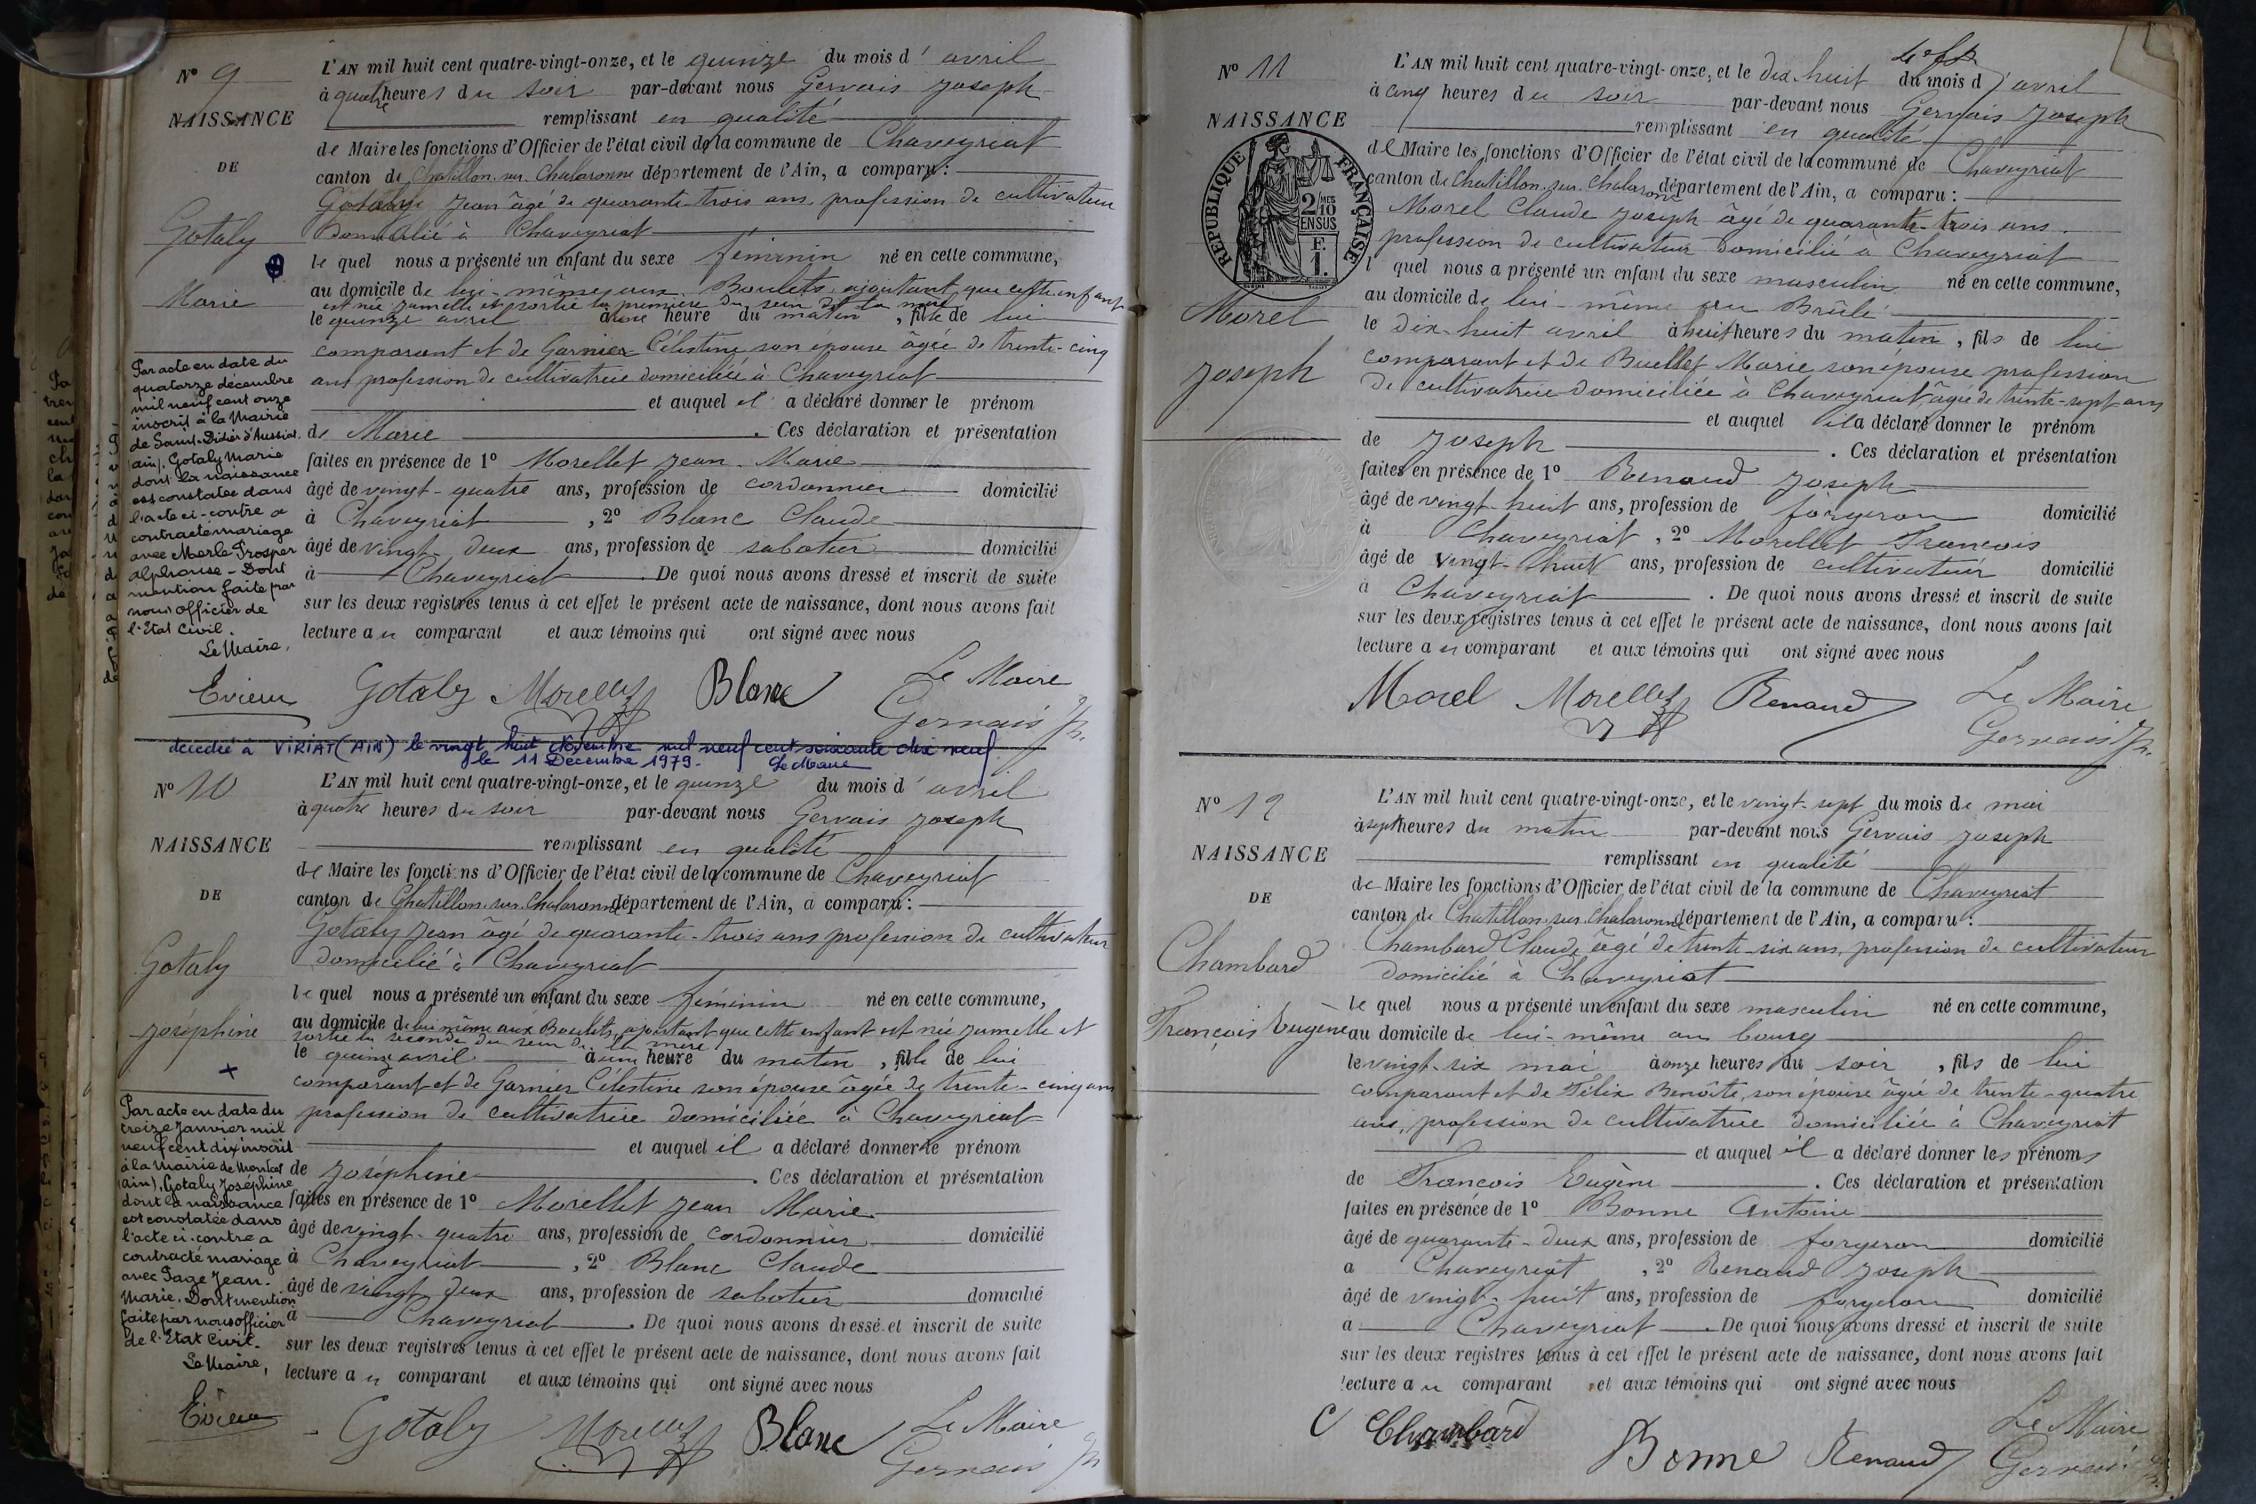 N° 9
NAISSANCE
DE
Gotaly
Marie
L'AN mil huit cent quatre-vingt-onze, et le quinze du mois d'avril
à quatre heures du soir par-devant nous Gervais Joseph
remplissant en qualité
de Maire les fonctions d'Officier de l'état civil de la commune de Chaveyriat
canton de Chatillon-sur-Chalaronne département de l'Ain, a comparu :
Gotaly Jean âgé de quarante-trois ans profession de cultivateur
domicilié à Chaveyriat
le quel nous a présenté un enfant du sexe féminin né en cette commune,
au domicile de lui-même aux Boulets, ajoutant que cette enfant
est née jumelle et sortie la première du sein de la mère
le quinze avril à une heure du matin, fille de lui
comparant et de Garnier Célestine son épouse âgée de trente-cinq
ans profession de cultivatrice domiciliée à Chaveyriat
et auquel il a déclaré donner le prénom
de Marie. Ces déclaration et présentation
faites en présence de 1° Morellet Jean-Marie
âgé de vingt-quatre ans, profession de cordonnier domicilié
à Chaveyriat, 2° Blanc Claude
âgé de vingt-deux ans, profession de sabotier domicilié
à Chaveyriat. De quoi nous avons dressé et inscrit de suite
sur les deux registres tenus à cet effet le présent acte de naissance, dont nous avons fait
lecture au comparant et aux témoins qui ont signé avec nous
Par acte en date du
quatorze décembre
mil neuf cent onze
inscrit à la Mairie
de Saint-Didier d'Aussiat
(ain), Gotaly Marie
dont la naissance
est constatée dans
l'acte ci-contre a
contracté mariage
avec Merle Prosper
alphonse - Dont
mention faite par
nous officier de
l'Etat Civil.
Le Maire,
Evieux Gotaly Morellet Blanc Le Maire
Gervais Jh.
décédée à VIRIAT (AIN) le vingt huit Novembre mil neuf cent soixante dix neuf
le 11 Décembre 1979. Le Maire
N° 10
NAISSANCE
DE
Gotaly
Joséphine
L'AN mil huit cent quatre-vingt-onze, et le quinze du mois d'avril
à quatre heures du soir par-devant nous Gervais Joseph
remplissant en qualité
de Maire les fonctions d'Officier de l'état civil de la commune de Chaveyriat
canton de Chatillon-sur-Chalaronne département de l'Ain, a comparu :
Gotaly Jean âgé de quarante-trois ans profession de cultivateur
domicilié à Chaveyriat
le quel nous a présenté un enfant du sexe féminin né en cette commune,
au domicile de lui-même aux Boulets, ajoutant que cette enfant est née jumelle et
sortie la seconde du sein de la mère
le quinze avril à une heure du matin, fille de lui
comparant et de Garnier Célestine son épouse âgée de trente-cinq ans
profession de cultivatrice domiciliée à Chaveyriat
et auquel il a déclaré donner le prénom
de Joséphine. Ces déclaration et présentation
faites en présence de 1° Morellet Jean Marie
âgé de vingt-quatre ans, profession de cordonnier domicilié
à Chaveyriat, 2° Blanc Claude
âgé de vingt-deux ans, profession de sabotier domicilié
à Chaveyriat. De quoi nous avons dressé et inscrit de suite
sur les deux registres tenus à cet effet le présent acte de naissance, dont nous avons fait
lecture au comparant et aux témoins qui ont signé avec nous
Par acte en date du
treize Janvier mil
neuf cent dix inscrit
à la Mairie de Montcet
(ain), Gotaly Joséphine
dont la naissance
est constatée dans
l'acte ci-contre a
contracté mariage
avec Page Jean-
Marie. Dont mention
faite par nous officier
de l'Etat Civil.
Le Maire,
Evieux Gotaly Morellet Blanc Le Maire
Gervais Jh
N° 11
NAISSANCE
RÉPUBLIQUE FRANÇAISE
2/10 MES
EN SUS
F.
1.
Morel
Joseph
L'AN mil huit cent quatre-vingt-onze, et le dix-huit du mois d'avril
à cinq heures du soir par-devant nous Gervais Joseph
remplissant en qualité
de Maire les fonctions d'Officier de l'état civil de la commune de Chaveyriat
canton de Chatillon-sur-Chalaronne département de l'Ain, a comparu :
Morel Claude Joseph âgé de quarante-trois ans.
profession de cultivateur domicilié à Chaveyriat
l quel nous a présenté un enfant du sexe masculin né en cette commune,
au domicile de lui-même au Brûlé
le dix-huit avril à huit heures du matin, fils de lui
comparant et de Buellet Marie son épouse profession
de cultivatrice domiciliée à Chaveyriat âgée de trente-sept ans
et auquel il a déclaré donner le prénom
de Joseph. Ces déclaration et présentation
faites en présence de 1° Renaud Joseph
âgé de vingt-huit ans, profession de forgeron domicilié
à Chaveyriat, 2° Morellet François
âgé de vingt-huit ans, profession de cultivateur domicilié
à Chaveyriat. De quoi nous avons dressé et inscrit de suite
sur les deux registres tenus à cet effet le présent acte de naissance, dont nous avons fait
lecture au comparant et aux témoins qui ont signé avec nous
Morel Morellet Renaud Le Maire
Gervais Jh.
N° 12
NAISSANCE
DE
Chambard
François Eugène
L'AN mil huit cent quatre-vingt-onze, et le vingt-sept du mois de mai
à sept heures du matin par-devant nous Gervais Joseph
remplissant en qualité
de Maire les fonctions d'Officier de l'état civil de la commune de Chaveyriat
canton de Chatillon-sur-Chalaronne département de l'Ain, a comparu :
Chambard Claude âgé de trente-six ans, profession de cultivateur
domicilié à Chaveyriat
le quel nous a présenté un enfant du sexe masculin né en cette commune,
au domicile de lui-même au bourg
le vingt-six mai à onze heures du soir, fils de lui
comparant et de Félix Benoîte, son épouse âgée de trente-quatre
ans, profession de cultivatrice domiciliée à Chaveyriat
et auquel il a déclaré donner les prénoms
de François Eugène. Ces déclaration et présentation
faites en présence de 1° Bonne Antoine
âgé de quarante-deux ans, profession de forgeron domicilié
a Chaveyriat, 2° Renaud Joseph
âgé de vingt-huit ans, profession de forgeron domicilié
a Chaveyriat. De quoi nous avons dressé et inscrit de suite
sur les deux registres tenus à cet effet le présent acte de naissance, dont nous avons fait
lecture au comparant et aux témoins qui ont signé avec nous
C Chambard Bonne Renaud Le Maire
Gervais Jh.